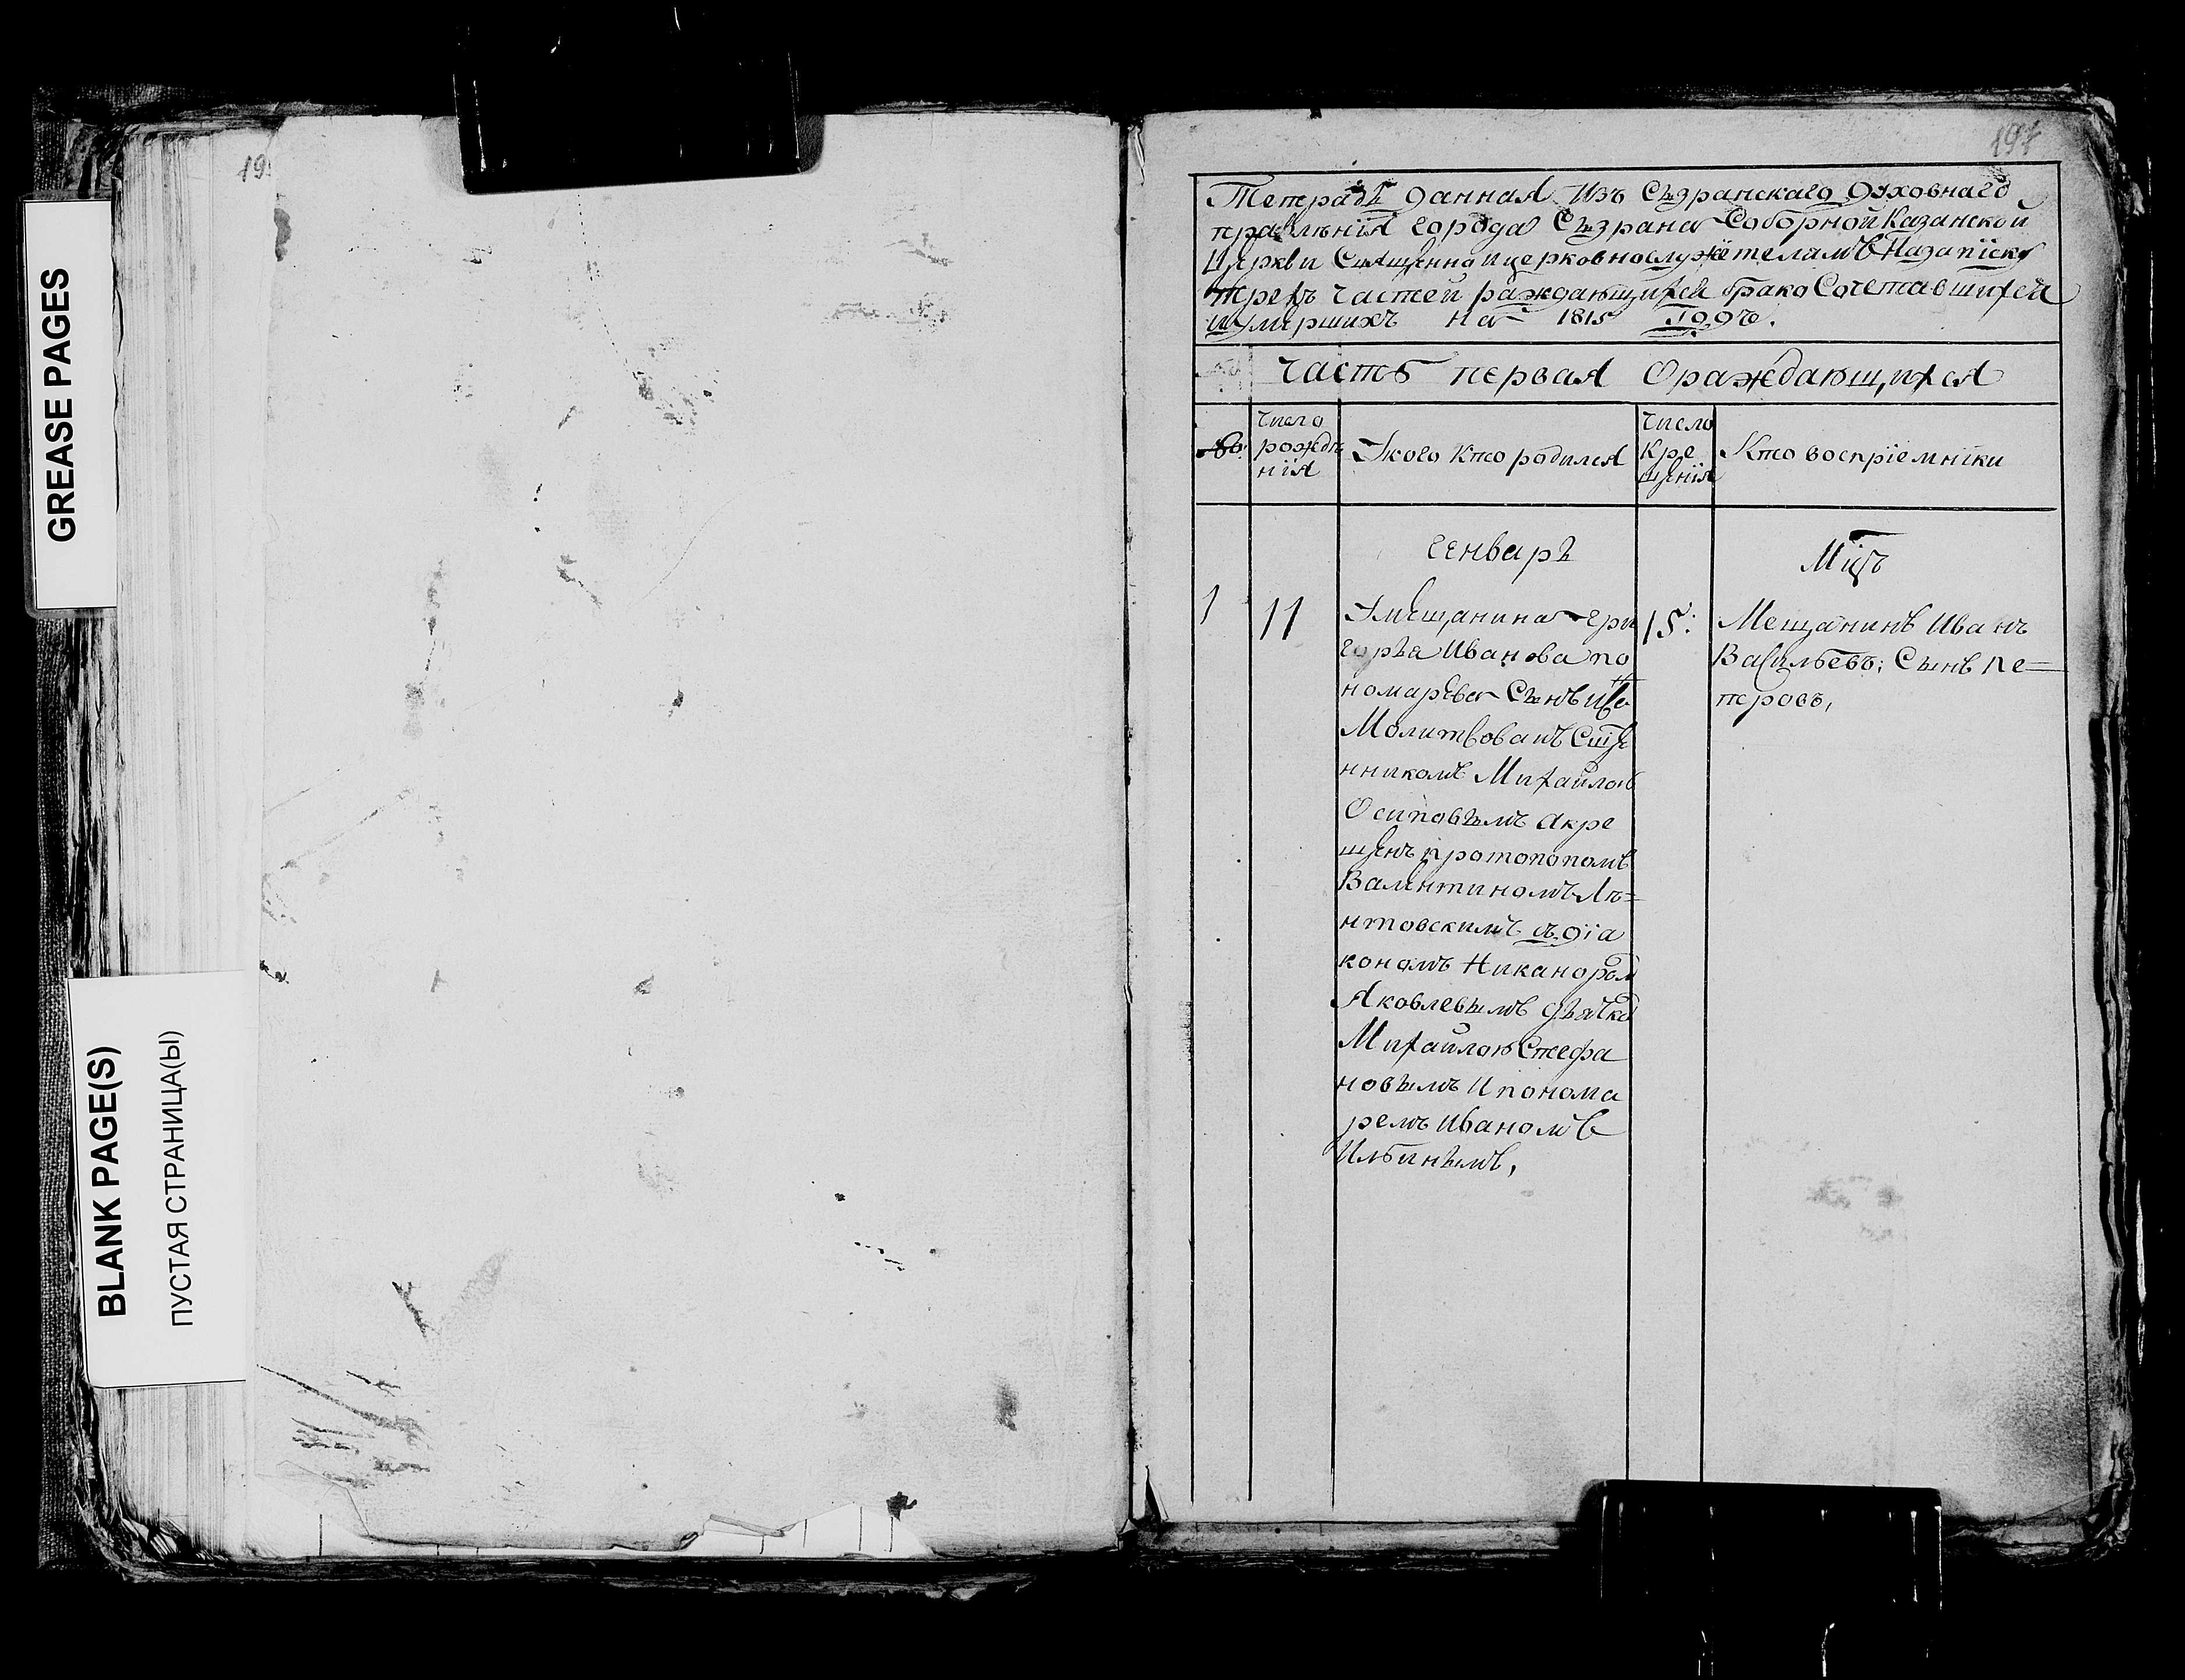 GREASE PAGES
BLANK PAGE(S)
ПУСТАЯ СТРАНИЦА(Ы)
19
197
Тетрадь данная Изъ Сызранскаго духовнаго
правленїя города Сызрана Соборной Казанской
Церкви Священно и церковнослужителямъ Назапїску
трехъ частей раждающихся брако Сочетавшихся
иумершихъ На 1815 годъ.
Часть первая Ораждающихся
число
рожде
нїя
Укого кто родился
число
Кре
щенїя
Кто воспрїемнїки
Генварь
Мцъ
1
11
Умещанина Гри
горья Иванова по
номарева Сынъ
Молитвованъ Сще
нникомъ Михайлою
Осиповымъ акре
щенъ протопопомъ
Валентиномъ Лѣ=
нтовскимъ съ дїа
кономъ Никанором
Яковлевымъ дьячко
Михайлою Стефа
новымъ Ипонома
ремъ Иваномъ
Ильинымъ,
15:
Мещанинъ Иванъ
Васильевъ: Сынъ пе=
тровъ,